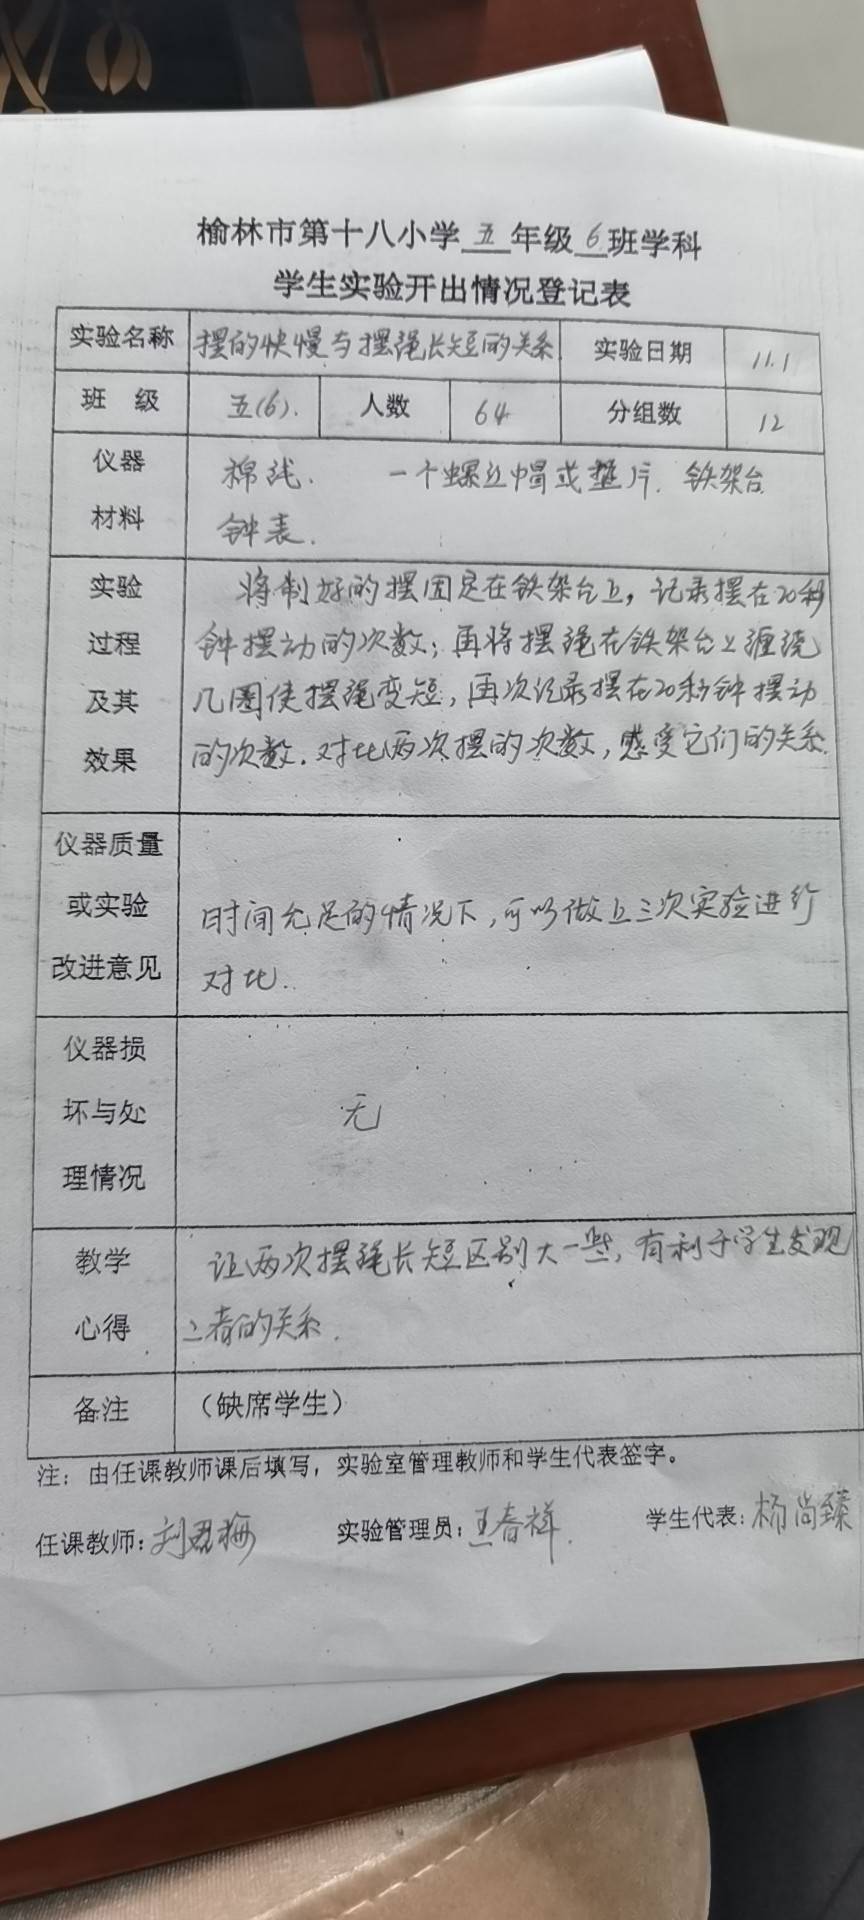 榆林市第十八小学五年级6班学科
学生实验开出情况登记表
实验名称 摆的快慢与摆绳长短的关系 实验日期 11.1
班 级 五(6). 人数 64 分组数 12
仪器 棉线. 一个螺丝帽或垫片. 铁架台
材料 钟表.
实验 将制好的摆固定在铁架台上，记录摆在20秒
过程 钟摆动的次数；再将摆绳在铁架台上缠绕
及其 几圈使摆绳变短，再次记录摆在20秒钟摆动
效果 的次数.对比两次摆的次数，感受它们的关系.
仪器质量
或实验 时间充足的情况下，可以做上三次实验进行
改进意见 对比.
仪器损
坏与处 无
理情况
教学 让两次摆绳长短区别大一些，有利于学生发现
心得 二者的关系.
备注 （缺席学生）
注：由任课教师课后填写，实验室管理教师和学生代表签字。
任课教师：刘君梅 实验管理员：王春祥. 学生代表：杨尚臻